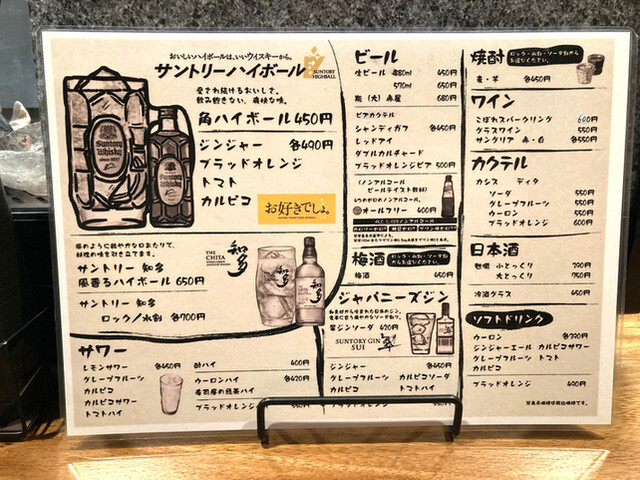 おいしいハイボールは、いいウイスキーから。
サントリーハイボール
SUNTORY
HIGHBALL
愛され続けるおいしさ。
飲み飽きない、爽快な味。
角ハイボール 450円
ジンジャー 各490円
ブラッドオレンジ
トマト
カルピコ
Suntory
Whisky
お好きでしょ。
風のように軽やかな口あたりで、
料理の味を引き立てます。
サントリー 知多
風香るハイボール 650円
サントリー 知多
ロック/水割 各700円
THE
CHITA
知多
サワー
レモンサワー 各450円
グレープフルーツ
カルピコ
カルピコサワー
トマトハイ
酎ハイ 400円
ウーロンハイ 各420円
ブラッドオレンジ 550円
ビール
生ビール 380ml 450円
570ml 650円
瓶 (大) 赤星 680円
ビアカクテル
シャンディガフ 各450円
レッドアイ
ダブルカルチャード
ブラッドオレンジビア 500円
(ノンアルコール
ビールテイスト飲料)
4つのゼロのノンアルコール。
オールフリー 400円
梅酒
ロック・水割・ソーダ割
からお選びください。
梅酒 450円
ジャパニーズジン
翠ジンソーダ 420円
SUNTORY GIN
SUI
翠
ジンジャー 各450円
グレープフルーツ カルピコソーダ
カルピコ トマトハイ
ブラッドオレンジ 550円
焼酎
ロック・水割・ソーダ割から
お選びください。
麦・芋 各450円
ワイン
こぼれスパークリング 600円
グラスワイン 550円
サングリア 赤・白 各550円
カクテル
カシス ディタ
ソーダ 550円
グレープフルーツ 550円
ウーロン 550円
ブラッドオレンジ 600円
日本酒
小とっくり 390円
大とっくり 750円
冷酒グラス 450円
ソフトドリンク
ウーロン 各290円
ジンジャーエール カルピコサワー
グレープフルーツ トマト
カルピコ
ブラッドオレンジ 490円